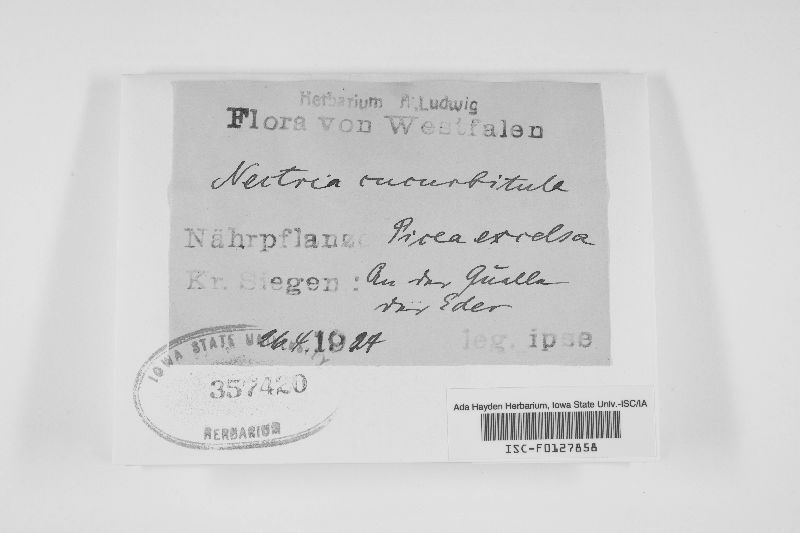 Herbarium A. Ludwig
Flora von Westfalen
Nectria cucurbitula
Nährpflanze Picea excelsa
Kr. Siegen: An der Quelle
der Eder
26.4.1924 leg. ipse
IOWA STATE UNIVERSITY
357420
HERBARIUM
Ada Hayden Herbarium, Iowa State Univ.-ISC/IA
ISC-F0127858